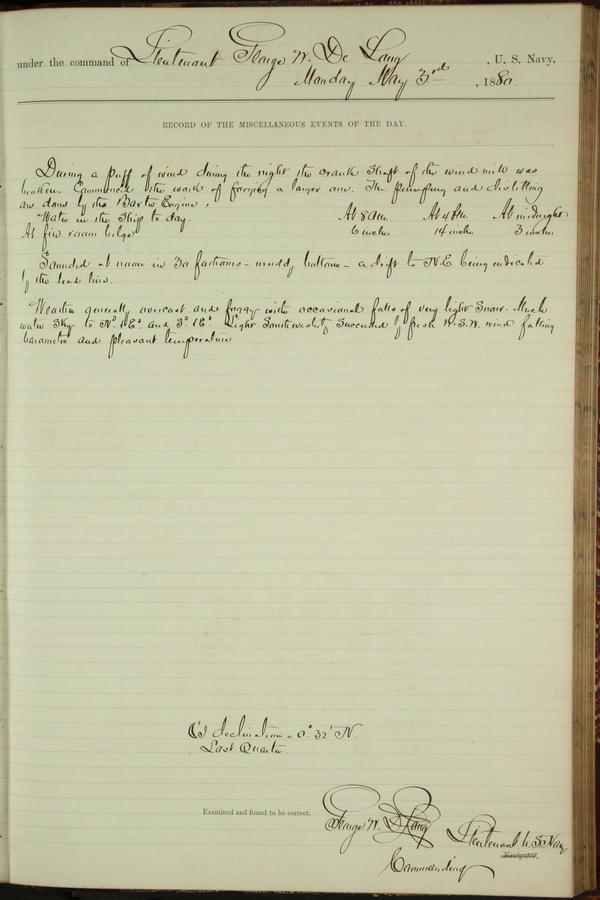 under the command of Lieutenant George W. De Long, U. S. Navy,
Monday May 3rd, 1880.
RECORD OF THE MISCELLANEOUS EVENTS OF THE DAY.
During a puff of wind during the night the crank shaft of the wind mill was
broken. Commenced the work of forging a larger one. The pumping and distilling
are done by the Baxter Engine.
Water in the Ship to day. At 8 A.M. At 4 P.M. At midnight
At fire room bilge 6 inches. 14 inches 3 inches.
Sounded at noon in 30 fathoms - muddy bottom - a drift to N.E being indicated
by the lead line.
Weather generally overcast and foggy with occasional falls of very light Snow. Much
water Sky to Nd. & Ed. and Sd. & Ed. Light Southwesterly Succeeded by fresh W.S.W. wind falling
barometer and pleasant temperature
☾'s declination = 0° 32' N.
Last Quarter.
Examined and found to be correct.
George W. De Long Lieutenant U.S. Navy
Navigator.
Commanding